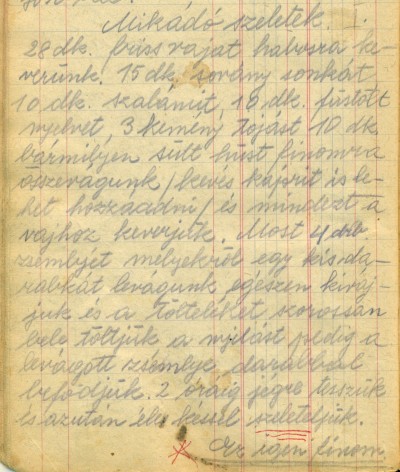 Mikádó szeletek.
28 dk. friss vajat habosra ke-
verünk. 15 dk. sovány sonkát
10 dk. szalámit, 10 dk. füstölt
nyelvet, 3 kemény tojást 10 dk
bármilyen sült húst finomra
összevágunk / kevés káprit is le-
het hozzáadni / és mindezt a
vajhoz keverjük. Most 4 drb.
zsemlyét melyekről egy kis da-
rabkát levágunk egészen kiváj-
juk és a tölteléket szorosan
bele töltjük a nyilást pedig a
levágott zsemlye darabbal
befödjük. 2 óráig jégre tesszük
és azután éles késsel szeleteljük.
Ez igen finom.